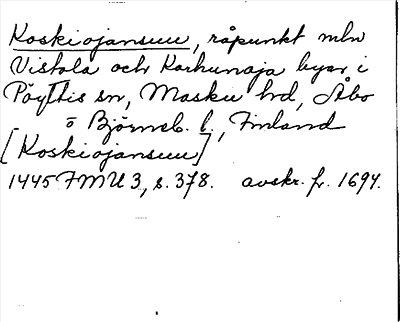 Koskiojansuu, råpunkt mln
Vistola och Karhunoja byar i
Pöyttis sn, Masku hd, Åbo
o Björneb. l., Finland
[Koskiojansuu]
1445 FMU 3, s. 378. avskr. fr. 1694.